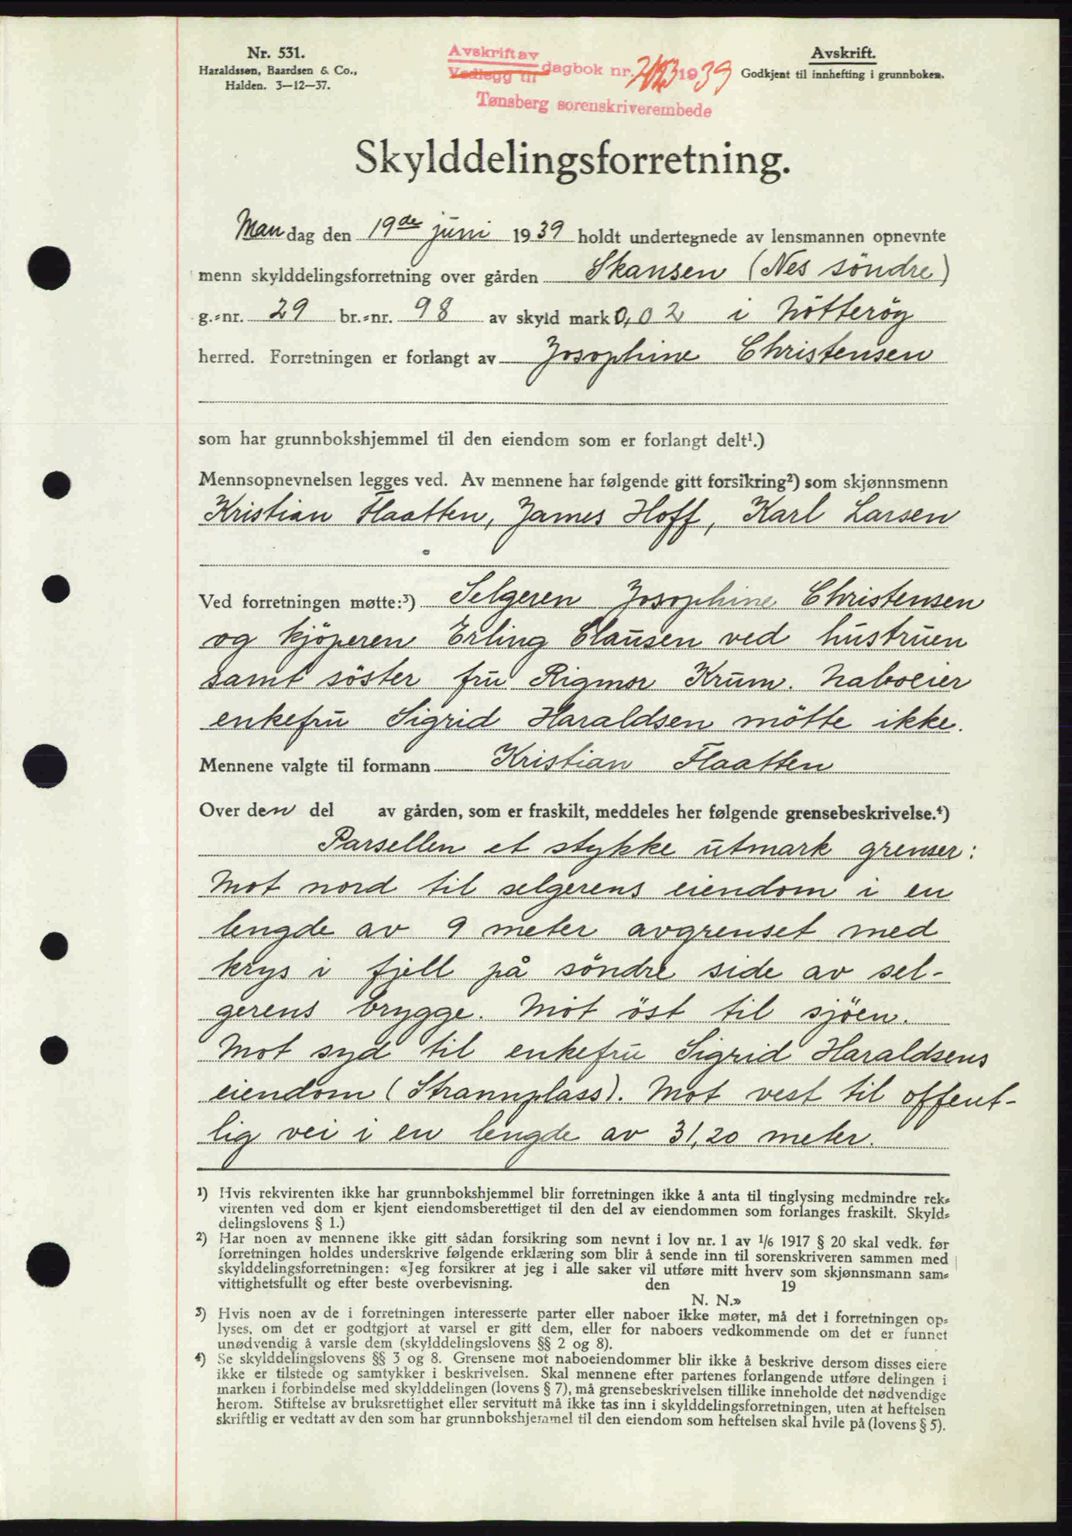 Nr. 531.
Haraldssen, Baardsen & Co.,
Halden. 3—12—37.
Avskrift av
Vedlegg til
dagbok nr. 1939
Tønsberg sorenskriverembede
Avskrift.
Godkjent til innhefting i grunnboken.
Skylddelingsforretning.
Mandag den 19de juni 1939 holdt undertegnede av lensmannen opnevnte
menn skylddelingsforretning over gården Skansen (Nes söndre)
g.=nr. 29 br.=nr. 98 av skyld mark 0,02 i Nötteröy
herred. Forretningen er forlangt av Josophine Christensen
som har grunnbokshjemmel til den eiendom som er forlangt delt¹.)
Mennsopnevnelsen legges ved. Av mennene har følgende gitt forsikring²) som skjønnsmenn
Kristian Flaatten, James Hoff, Karl Larsen
Ved forretningen møtte:³) Selgeren Josophine Christensen
og kjöperen Erling Clausen ved hustruen
samt söster fru Rigmor Krum. Naboeier
enkefru Sigrid Haraldsen mötte ikke.
Mennene valgte til formann Kristian Flaatten
Over den del av gården, som er fraskilt, meddeles her følgende grensebeskrivelse.⁴)
Parsellen et stykke utmark grenser:
Mot nord til selgerens eiendom i en
lengde av 9 meter avgrenset med
krys i fjell på söndre side av sel-
gerens brygge. Mot öst til sjöen.
Mot syd til enkefru Sigrid Haraldsens
eiendom (Strannplass). Mot vest til offent-
lig vei i en lengde av 31,20 meter.
¹) Hvis rekvirenten ikke har grunnbokshjemmel blir forretningen ikke å anta til tinglysing medmindre rek=
virenten ved dom er kjent eiendomsberettiget til den del av eiendommen som forlanges fraskilt. Skyld=
delingslovens § 1.)
²) Har noen av mennene ikke gitt sådan forsikring som nevnt i lov nr. 1 av ¹/₆ 1917 § 20 skal vedk. før
forretningen holdes underskrive følgende erklæring som blir å sende inn til sorenskriveren sammen med
skylddelingsforretningen: «Jeg forsikrer at jeg i alle saker vil utføre mitt hverv som skjønnsmann sam=
vittighetsfullt og efter beste overbevisning. den 19
N. N.»
³) Hvis noen av de i forretningen interesserte parter eller naboer ikke møter, må det i forretningen op=
lyses, om det er godtgjort at varsel er gitt dem, eller for naboers vedkommende om det er funnet
unødvendig å varsle dem (skylddelingslovens §§ 2 og 8).
⁴) Se skylddelingslovens §§ 3 og 8. Grensene mot naboeiendommer blir ikke å beskrive dersom disses eiere
ikke er tilstede og samtykker i beskrivelsen. Skal mennene efter partenes forlangende utføre delingen i
marken i forbindelse med skylddelingen (lovens § 7), må grensebeskrivelsen tillike inneholde det nødvendige
herom. Stiftelse av bruksrettighet eller servitutt må ikke tas inn i skylddelingsforretningen, uten at heftelsen
skriftlig er vedtatt av den som har grunnbokshjemmel til den eiendom som heftelsen skal hvile på (lovens § 5).